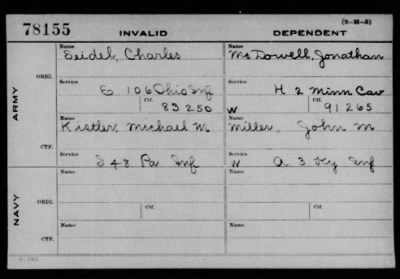 78155 INVALID DEPENDENT (3-H-3)
Name Name
Seidel, Charles McDowell, Jonathan
ORIG. Service Service
E 106 Ohio Inf H 2 Minn Cav
Ctf. Ctf.
83250 W 91265
ARMY
Name Name
Kistler, Michael M. Miller, John M
CTF. Service Service
I 48 Pa Inf W A. 3 Ky Inf
Name Name
NAVY
ORIG. Ctf. Ctf.
Name Name
CTF.